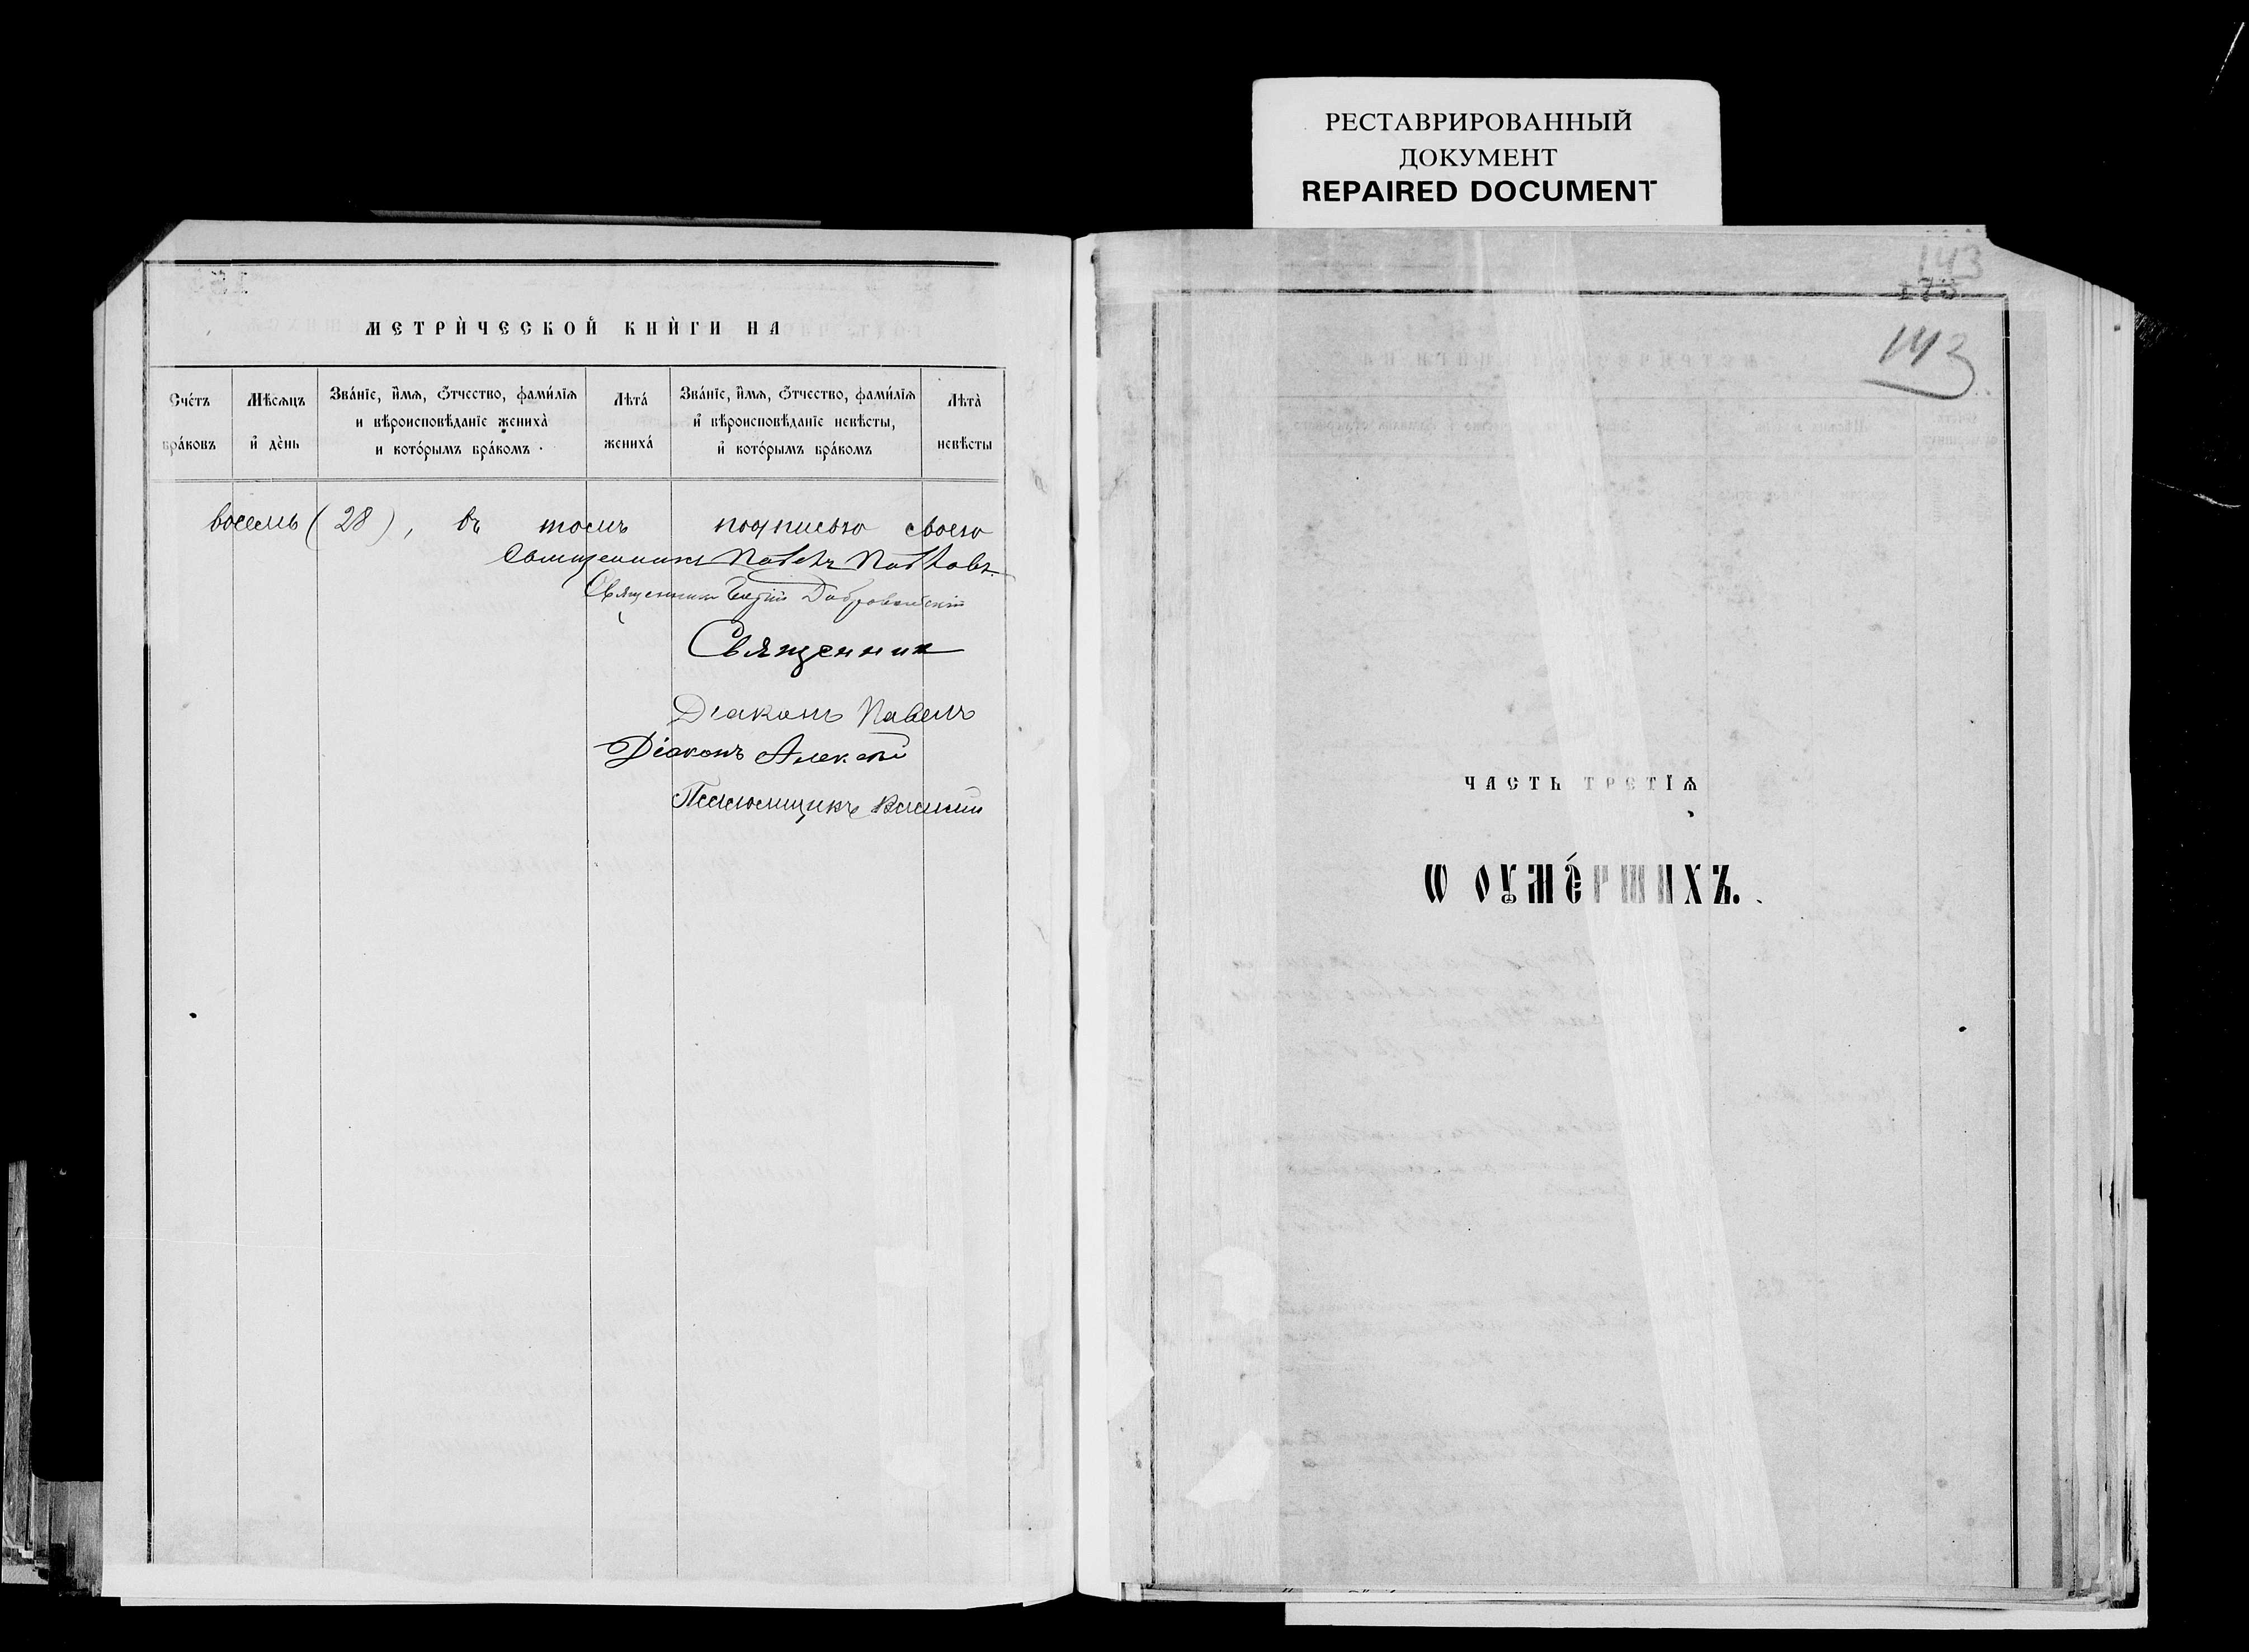 РЕСТАВРИРОВАННЫЙ
ДОКУМЕНТ
REPAIRED DOCUMENT
МЕТРИ́ЧЕСКОЙ КНИ́ГИ НА
Сче́тъ бра́ковъ
Мѣсѧцъ и҆ де́нь
Зва́нїе, и҆́мѧ, ѻ҆́тчество, фами́лїѧ и вѣроисповѣданїе жениха̀ и кото́рымъ бра́комъ
Лѣта̀ жениха̀
Зва́нїе, и҆́мѧ, ѻ҆́тчество, фами́лїѧ и҆ вѣроисповѣданїе невѣсты, и҆ кото́рымъ бра́комъ
Лѣта̀ невѣсты
восемь (28), въ томъ подписью своею
Священникъ Павелъ
Священникъ
Священник
Діаконъ Павелъ
Діаконъ Алексѣй
Псаломщикъ
143
173
143
ЧАСТЬ ТРЕТІѦ
Ѡ ОУМЕ́РШИХЪ.